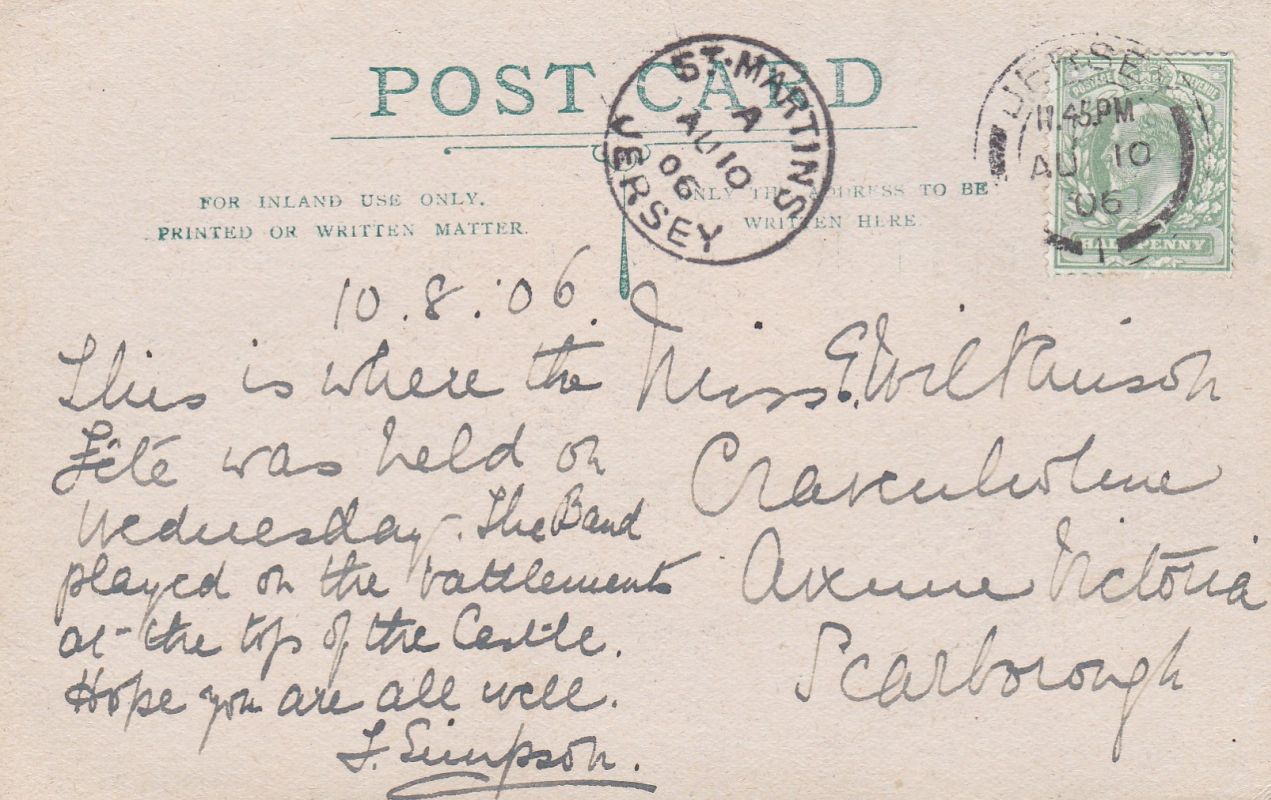 POST CARD
ST. MARTINS
A
AU 10
06
JERSEY
JERSEY
11.45 PM
AU 10
06
1
POSTAGE REVENUE
HALF PENNY
FOR INLAND USE ONLY.
PRINTED OR WRITTEN MATTER.
ONLY THE ADDRESS TO BE
WRITTEN HERE
10.8.06
This is where the
Fête was held on
Wednesday. The Band
played on the battlements
at the top of the Castle.
Hope you are all well.
J. Simpson.
Miss E. Wilkinson
Cravenholme
Avenue Victoria
Scarborough